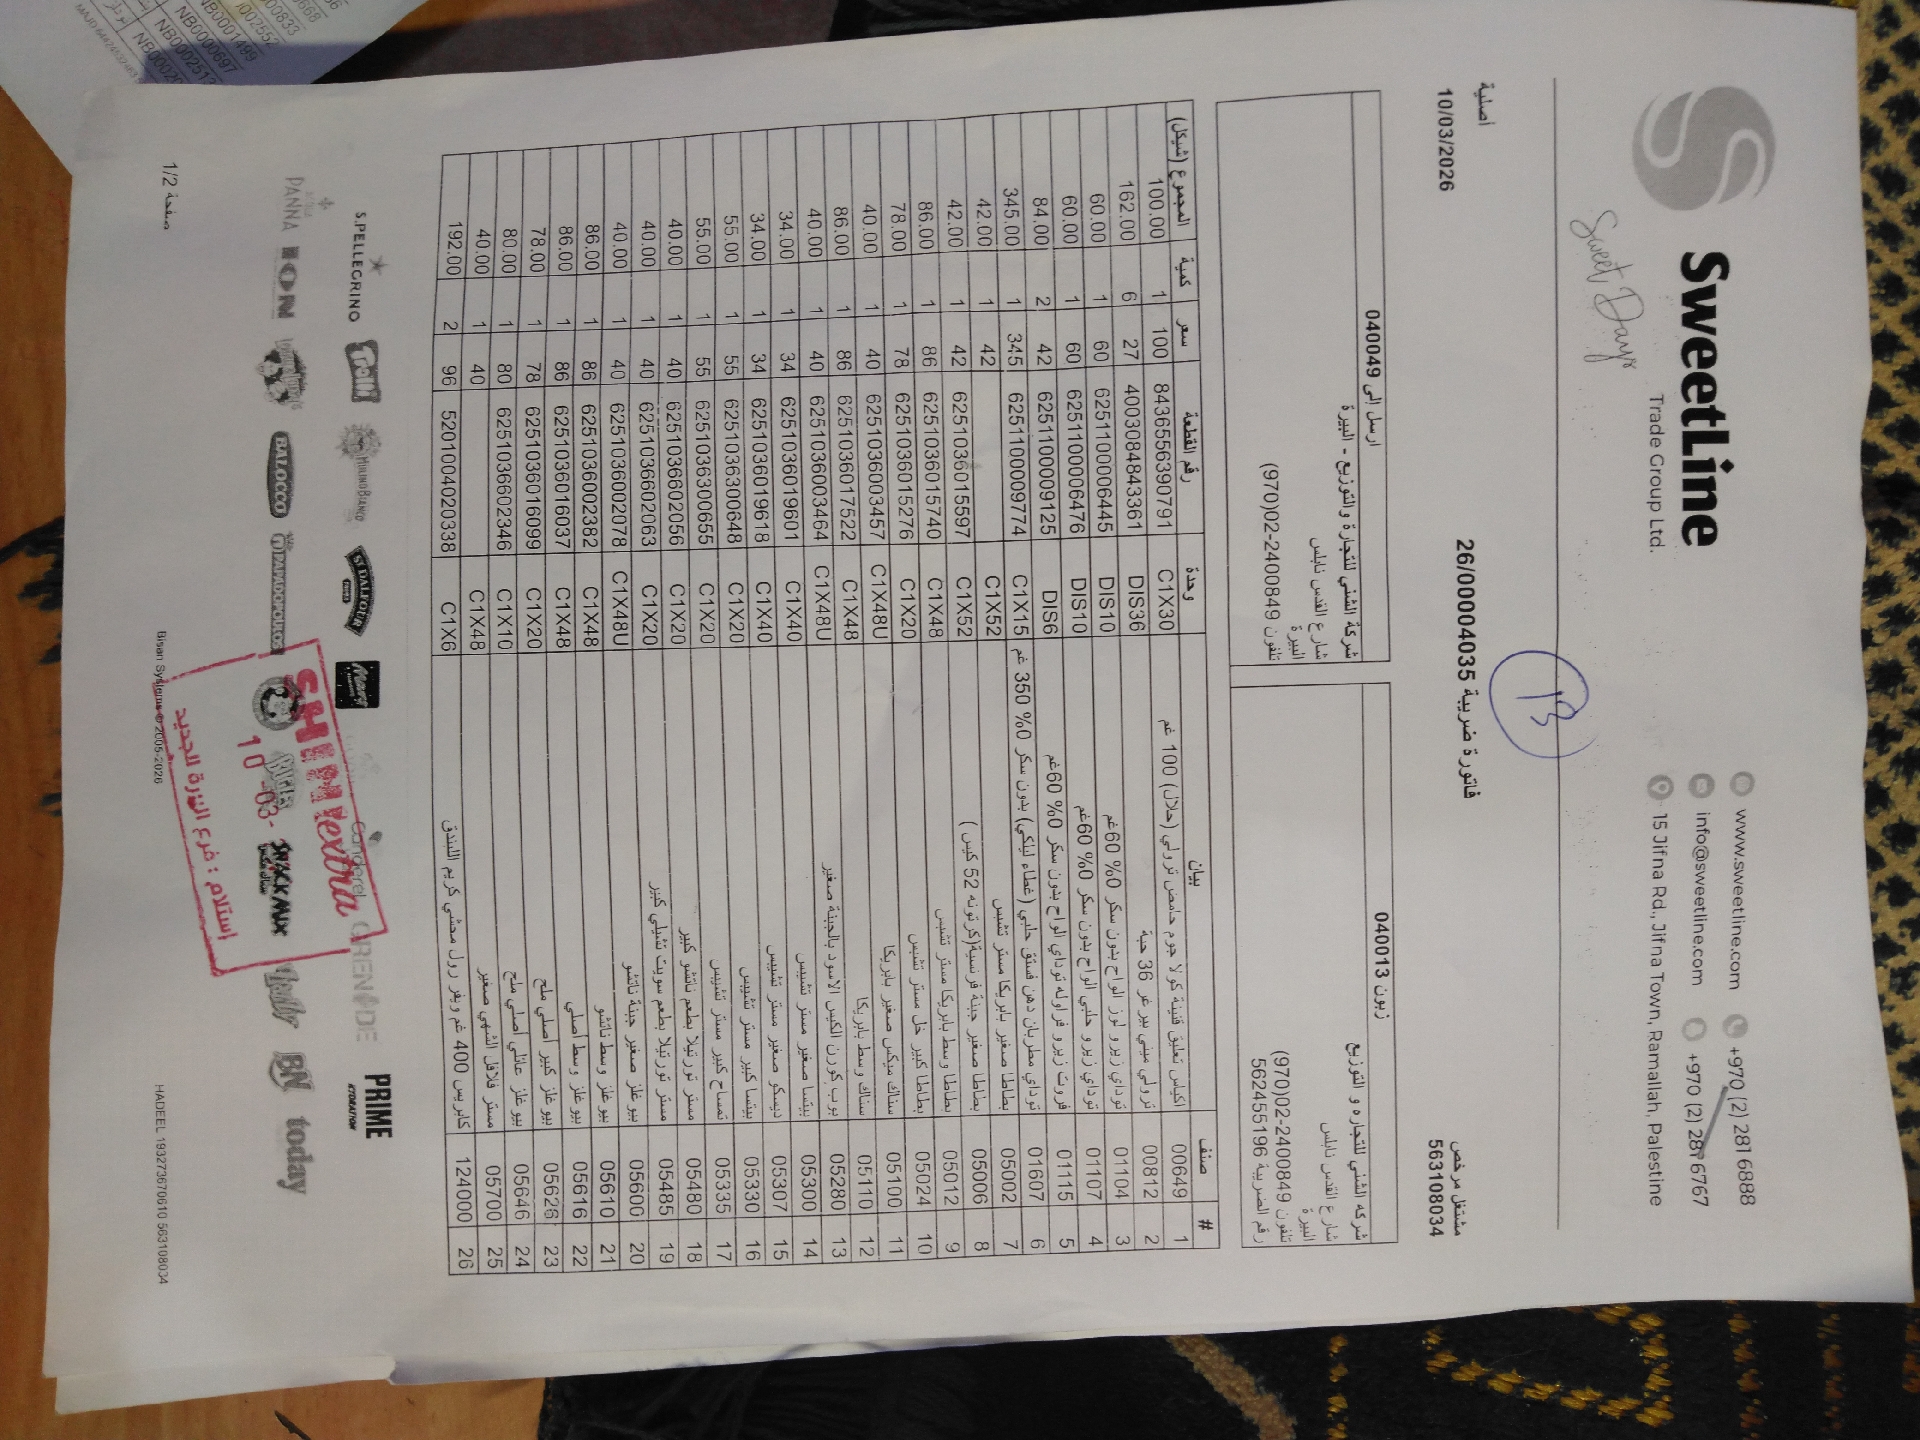 SweetLine
Trade Group Ltd.
www.sweetline.com +970 (2) 281 6888
info@sweetline.com +970 (2) 281 6767
15 Jifna Rd., Jifna Town, Ramallah, Palestine
Sweet Days
أصلية
10/03/2026
فاتورة ضريبة 26/00004035
مشتغل مرخص
563108034
زبون 040013
شركه الشني للتجاره و التوزيع
شارع القدس نابلس
البيرة
تلفون 02-2400849(970)
رقم الضريبة 562455196
ارسل إلى 040049
شركة الشني للتجارة والتوزيع - البيرة
شارع القدس نابلس
البيرة
تلفون 02-2400849(970)
# صنف بيان وحدة رقم القطعة سعر كمية المجموع (شيكل)
1 00649 اكياس تعليق قنينة كولا جوم حامض ترولي (حلال) 100 غم C1X30 8436556390791 100 1 100.00
2 00812 ترولي ميني بيرغر 36 حبة DIS36 4003084843361 27 6 162.00
3 01104 توداي زيرو لوز الواح بدون سكر 0% 60غم DIS10 6251100006445 60 1 60.00
4 01107 توداي زيرو حليي الواح بدون سكر 0% 60غم DIS10 6251100006476 60 1 60.00
5 01115 فروت زيرو فراوله توداي الواح بدون سكر 0% 60غم DIS6 6251100009125 42 2 84.00
6 01607 توداي مطربان دهن فستق حلبي (غطاء ليلكي) بدون سكر 0% 350 غم C1X15 6251100009774 345 1 345.00
7 05002 بطاطا صغير بابريكا مستر تشبس C1X52 42 1 42.00
8 05006 بطاطا صغير جبنة فرنسية(كرتونه 52 كيس ) C1X52 6251036015597 42 1 42.00
9 05012 بطاطا وسط بابريكا مستر تشبس C1X48 6251036015740 86 1 86.00
10 05024 بطاطا كبير خل مستر تشبس C1X20 6251036015276 78 1 78.00
11 051000 سناك ميكس صغير بابريكا C1X48U 6251036003457 40 1 40.00
12 051100 سناك وسط بابريكا C1X48 6251036017522 86 1 86.00
13 05280 بوب كورن الكيس الاسود بالجبنة صغير C1X48U 6251036003464 40 1 40.00
14 05300 بيتسا صغير مستر تشيبس C1X40 6251036019601 34 1 34.00
15 05307 ديسكو صغير مستر تشيبس C1X40 6251036019618 34 1 34.00
16 05330 بيتسا كبير مستر تشيبس C1X20 6251036300648 55 1 55.00
17 05335 تمساح كبير مستر تشيبس C1X20 6251036300655 55 1 55.00
18 05480 مستر تورتيلا بطعم ناتشو كبير C1X20 6251036602056 40 1 40.00
19 05485 مستر تورتيلا بطعم سويت تشيلي كبير C1X20 6251036602063 40 1 40.00
20 05600 بيوغلز صغير جبنة ناتشو C1X48U 6251036002078 40 1 40.00
21 05610 بيوغلز وسط ناتشو C1X48 6251036002382 86 1 86.00
22 05616 بيوغلز وسط أصلي C1X48 6251036016037 86 1 86.00
23 05626 بيوغلز كبير أصلي ملح C1X20 6251036016099 78 1 78.00
24 05646 بيوغلز عائلي أصلي ملح C1X10 6251036602346 80 1 80.00
25 05700 مستر فلافل الشهي صغير C1X48 40 1 40.00
26 124000 كابريس 400 غم ويفر رول محشي كريم البندق C1X6 5201004020338 96 2 192.00
S.PELLEGRINO trolli MULINO BIANCO ST.DALFOUR canderel GRENADE PRIME HYDRATION
PANNA ION BALOCCO PAPADOPOULOS SNACK MIX BN today
SHINI extra
10 -03-
إستلام : فرع البيرة الجديد
صفحة 1/2
Bisan Systems © 2005-2026
HADEEL 1932736706​10 563108034